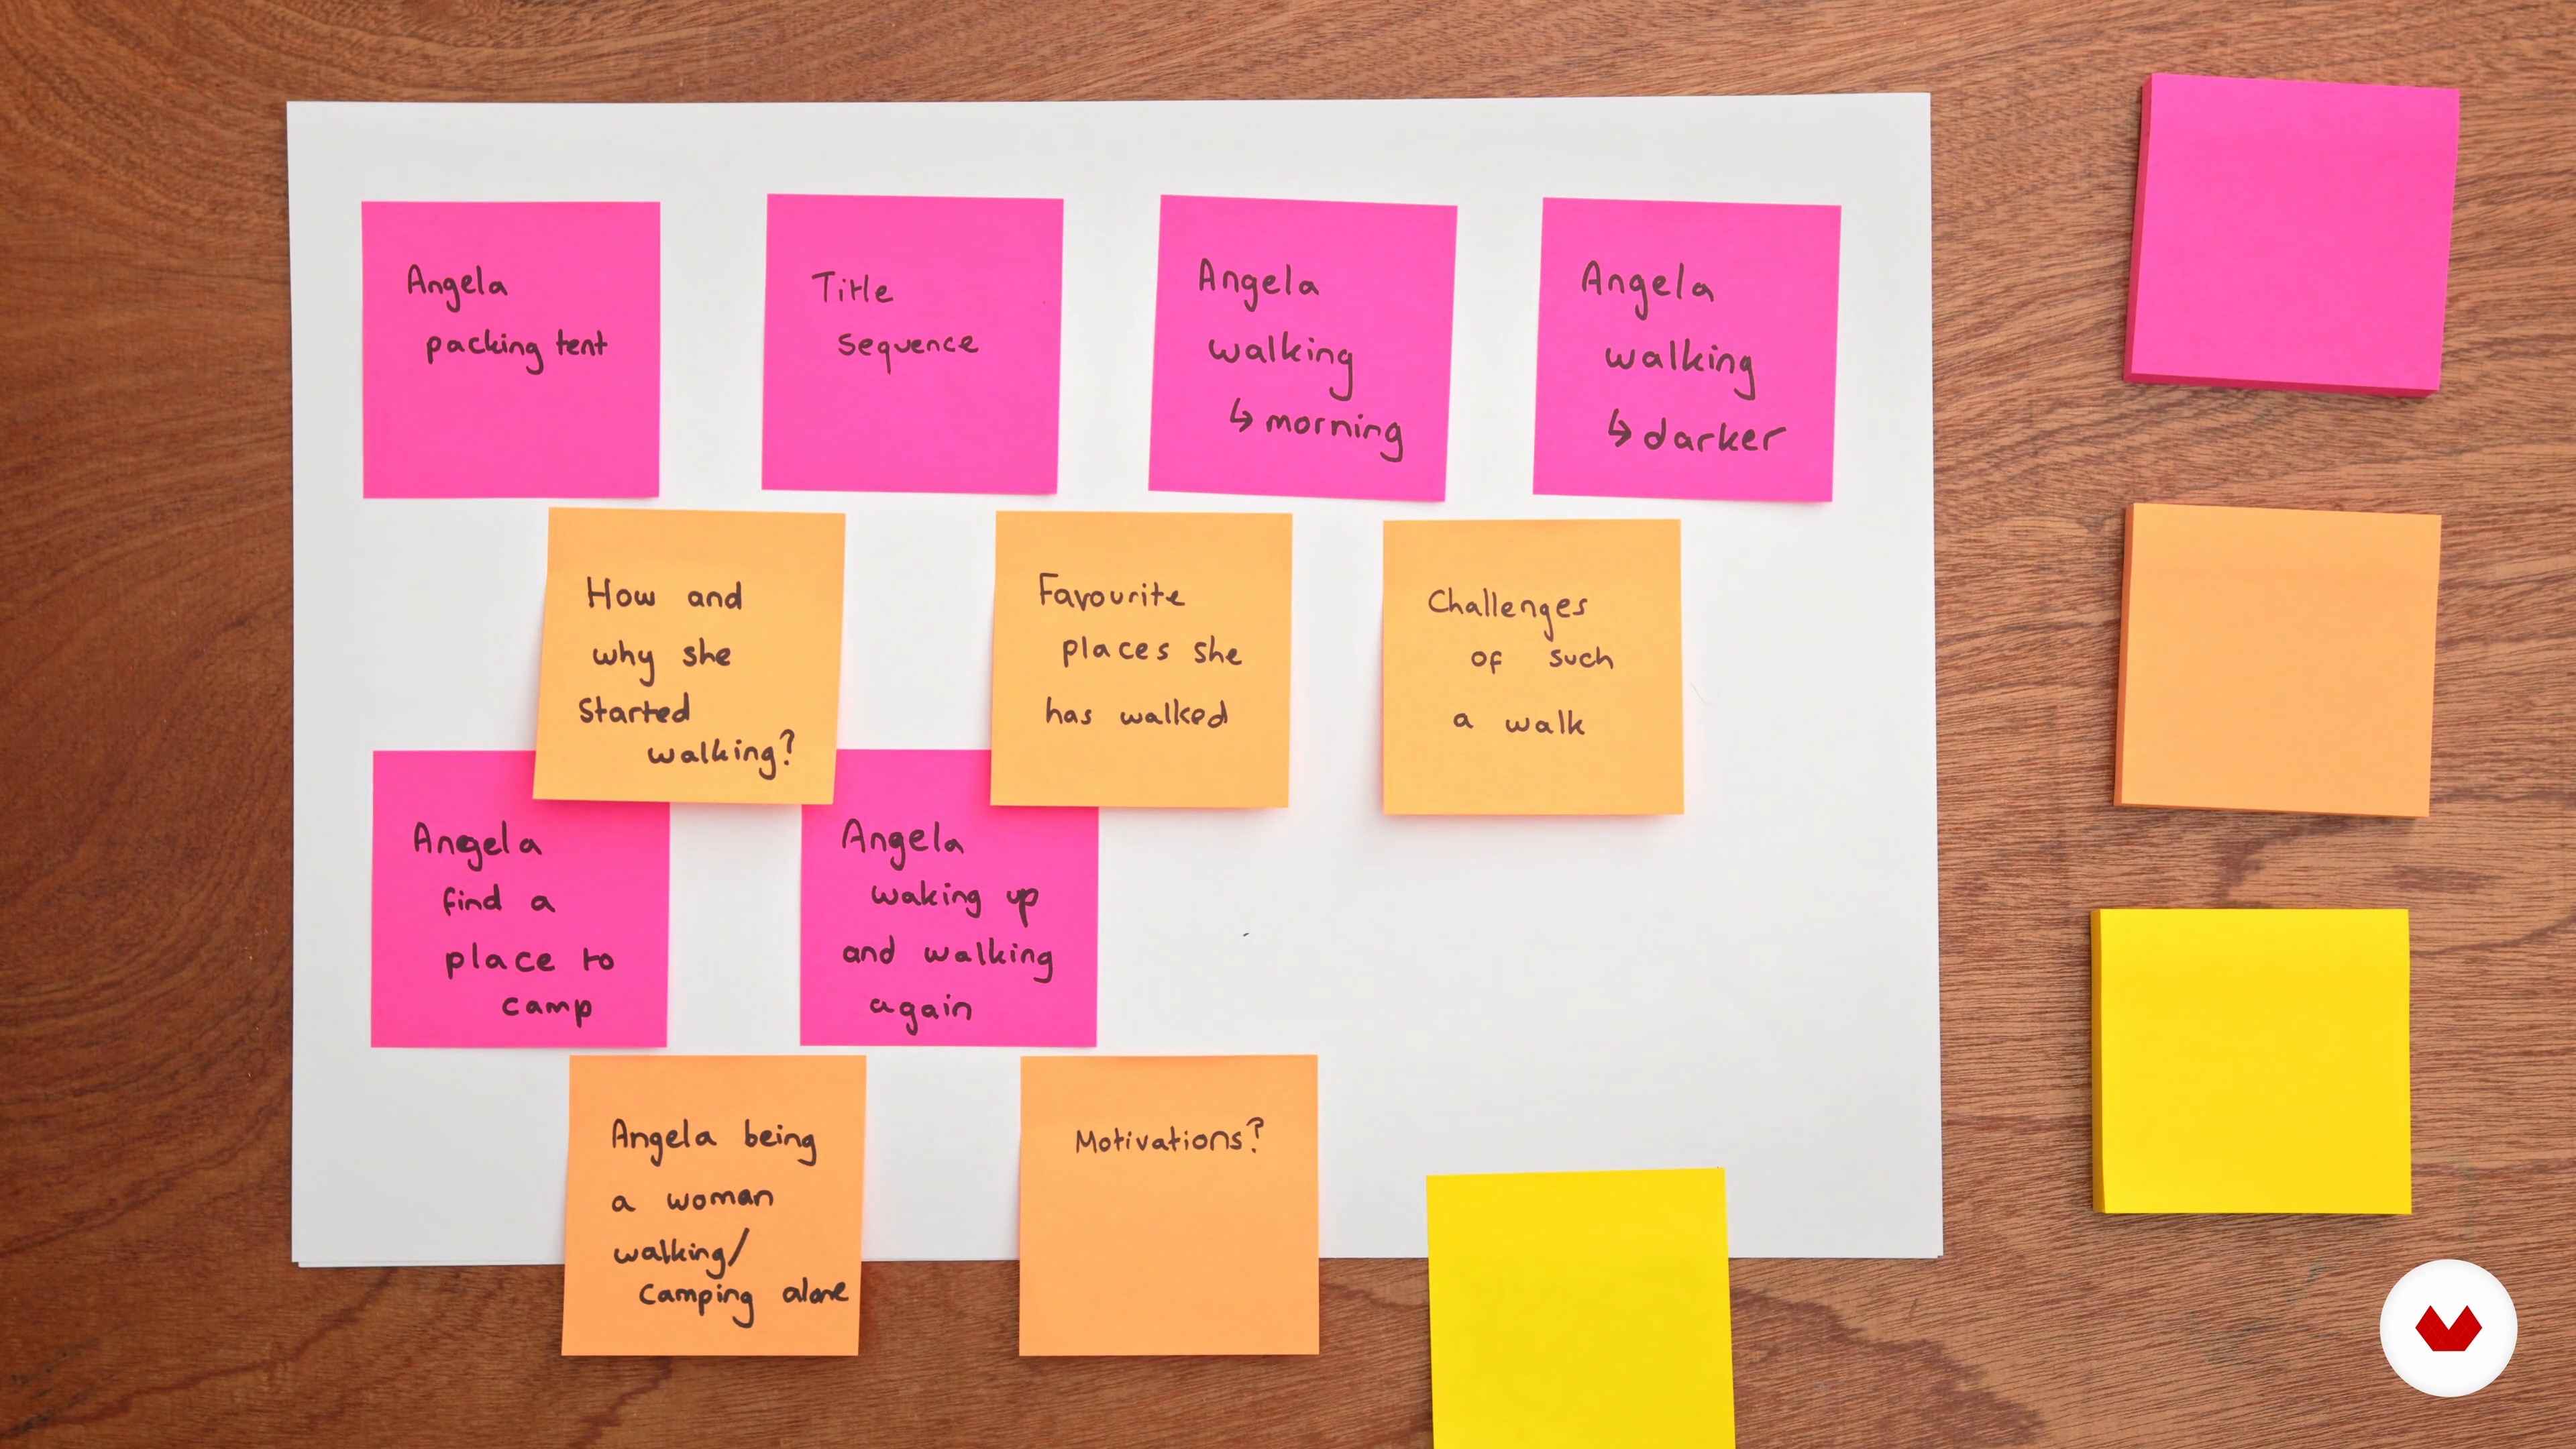 Angela
packing tent
Title
sequence
Angela
walking
↳ morning
Angela
walking
↳ darker
How and
why she
started
walking?
Favourite
places she
has walked
Challenges
of such
a walk
Angela
find a
place to
camp
Angela
waking up
and walking
again
Angela being
a woman
walking/
camping alone
Motivations?